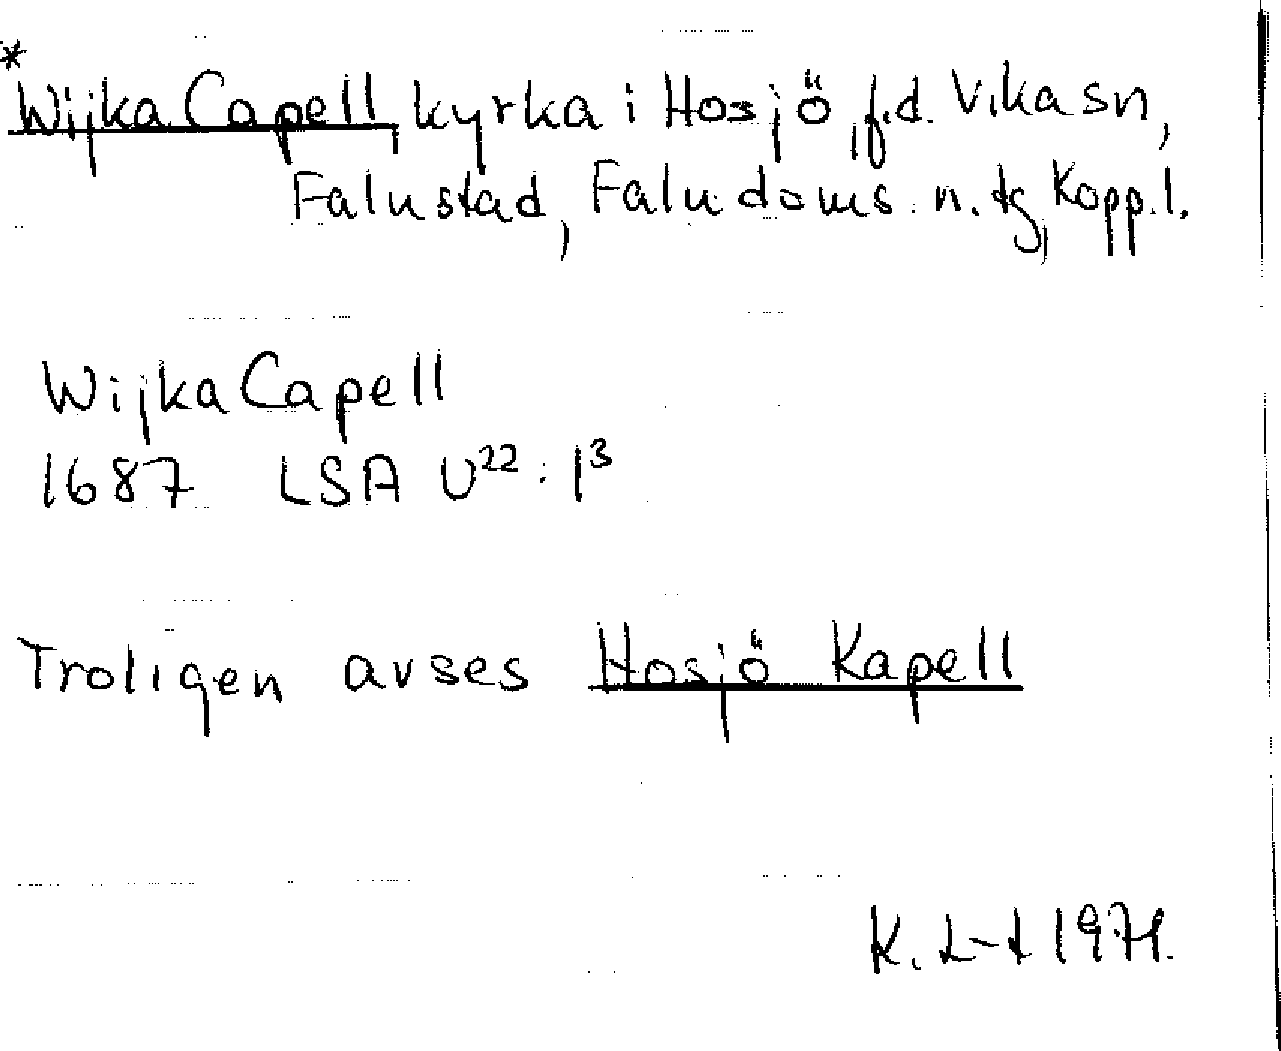 *Wijka Capell, kyrka i Hosjö, f.d. Vika sn,
Falu stad, Falu doms. n. tg, Kopp. l.
Wijka Capell
1687 LSA U²² : 1³
Troligen avses Hosjö Kapell
K. L-t 1971.